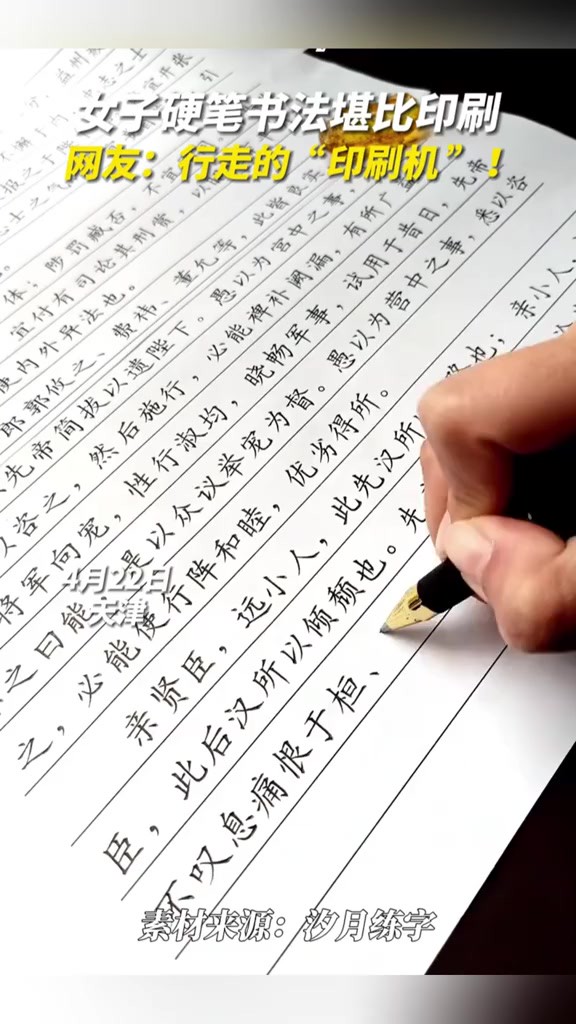 女子硬笔书法堪比印刷
网友：行走的“印刷机”！
体；陟罚臧否，不宜
宜付有司论其刑赏，以
使内外异法也。
郎郭攸之、费祎、董允等，此皆良实
先帝简拔以遗陛下。愚以为宫中之事，
以咨之，然后施行，必能裨补阙漏，有所广
将军向宠，性行淑均，晓畅军事，试用于昔日，先帝
之曰能 是以众议举宠为督。愚以为营中之事，悉以咨
之，必能使行阵和睦，优劣得所。
亲贤臣，远小人，此先汉所 也；亲小人，
臣，此后汉所以倾颓也。先
不叹息痛恨于桓、
4月22日
天津
素材来源：汐月练字